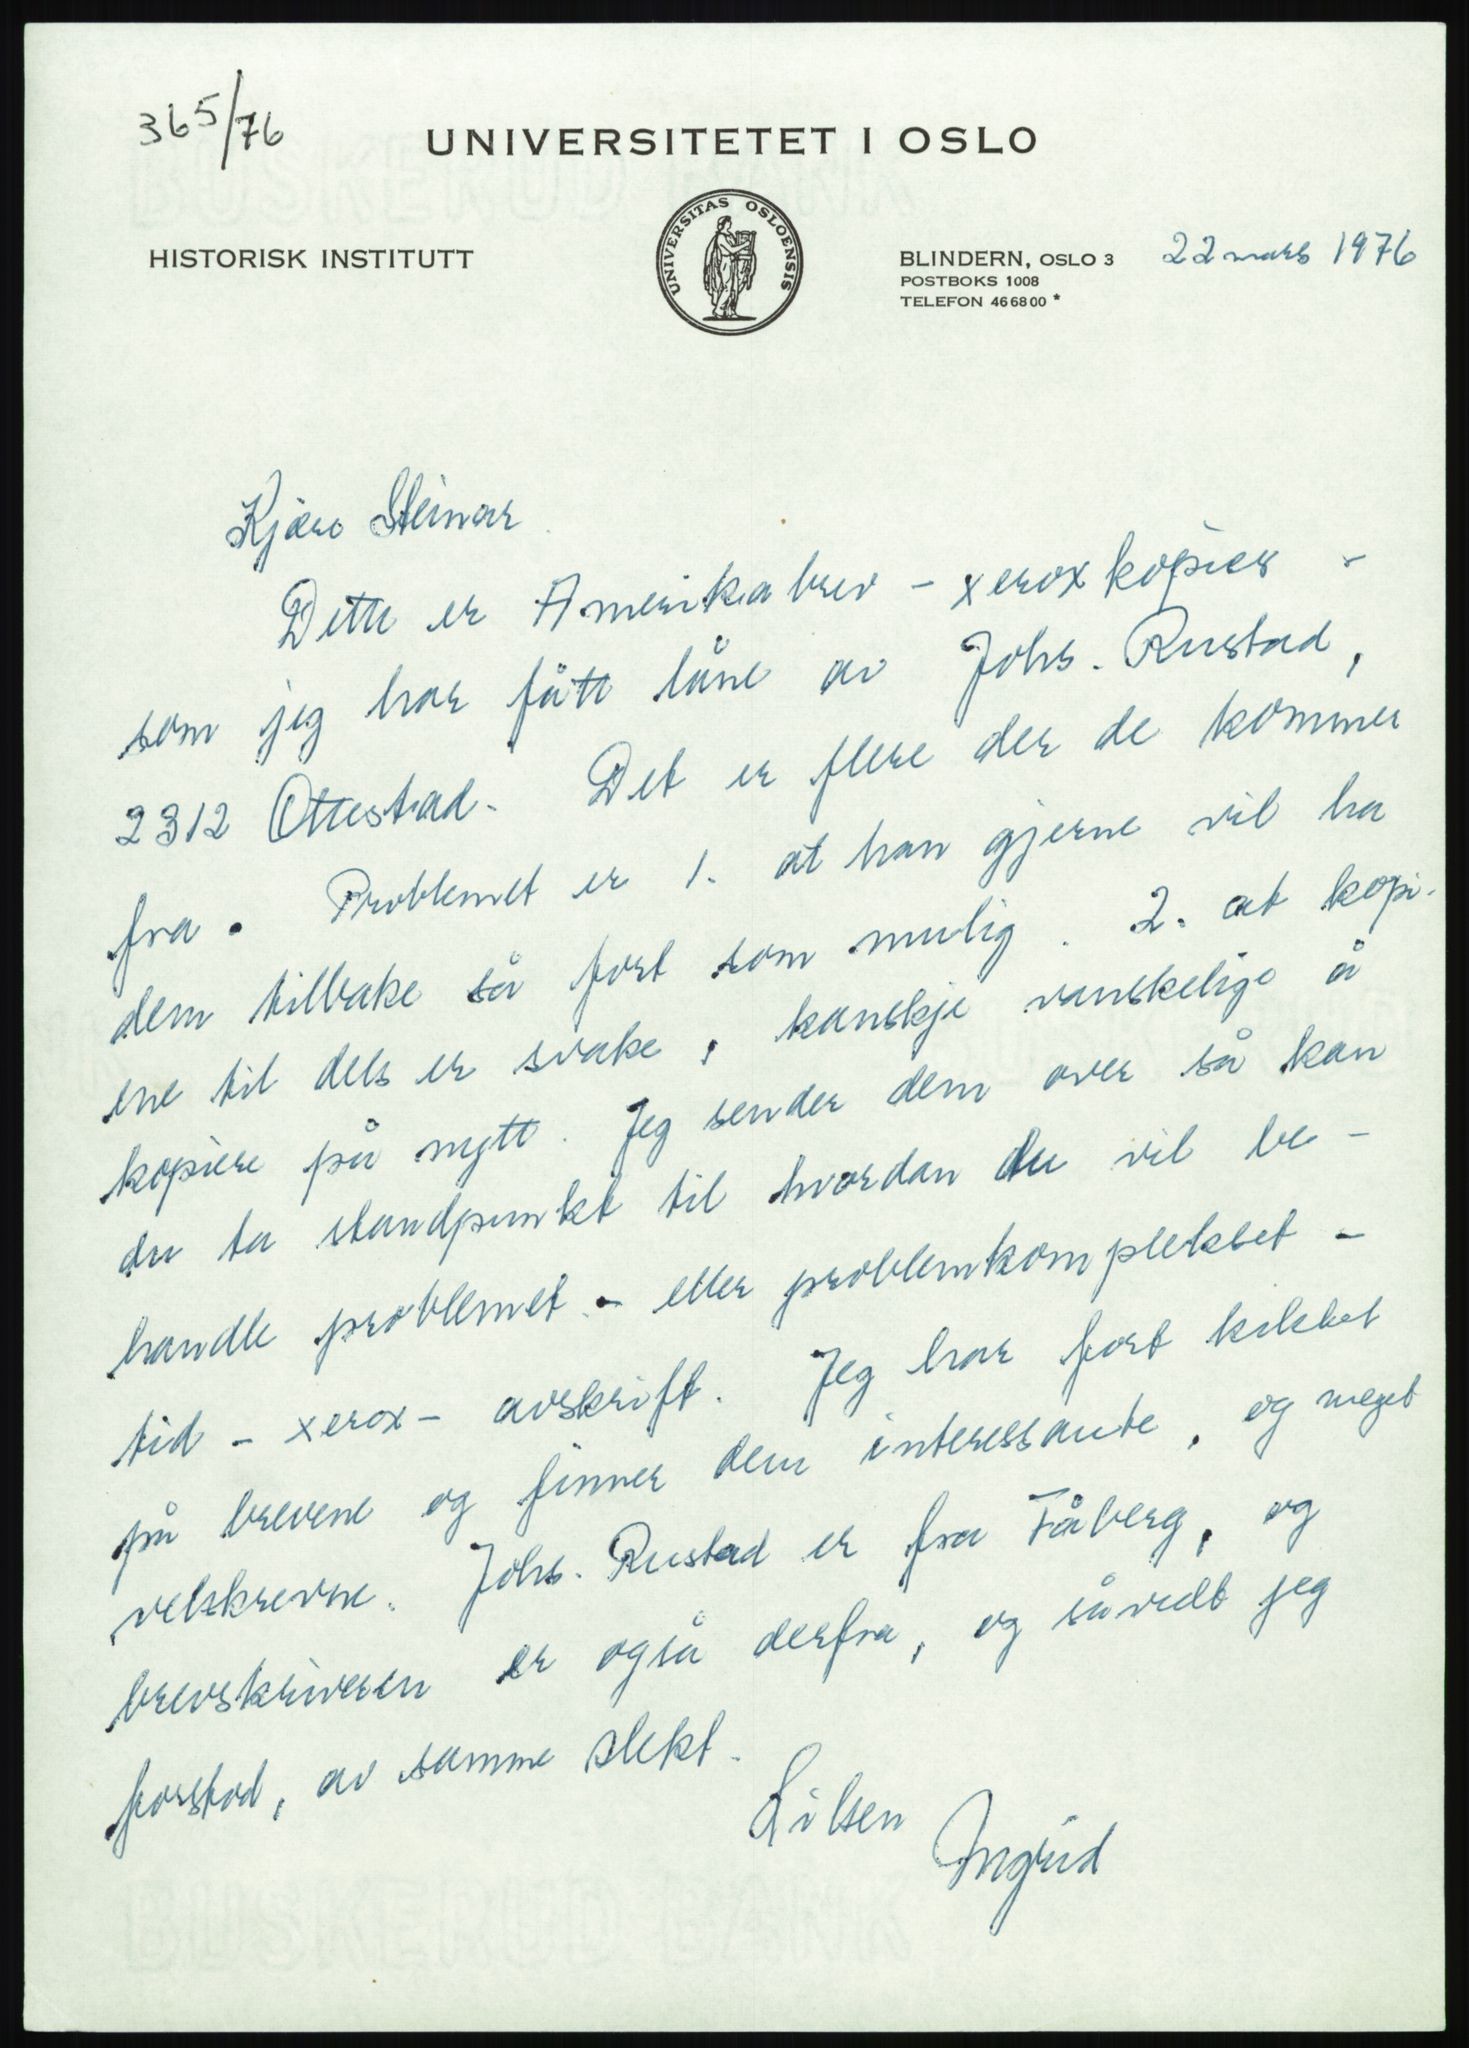 365/76
UNIVERSITETET I OSLO
UNIVERSITAS OSLOENSIS
HISTORISK INSTITUTT
BLINDERN, OSLO 3 22 mars 1976
POSTBOKS 1008
TELEFON 46 68 00 *
Kjære Steinar
Dette er Amerikabrev - xeroxkopier -
som jeg har fått låne av Johs. Rustad,
2312 Ottestad. Det er flere der de kommer
fra. Problemet er 1. at han gjerne vil ha
dem tilbake så fort som mulig. 2. at kopi-
ene til dels er svake, kanskje vanskelige å
kopiere på nytt. Jeg sender dem over så kan
du ta standpunkt til hvordan du vil be-
handle problemet - eller problemkomplekset -
tid - xerox - avskrift. Jeg har fort kikket
på brevene og finner dem interessante, og meget
velskrevne. Johs. Rustad er fra Fåberg, og
brevskriveren er også derfra, og såvidt jeg
forstod, av samme slekt.
Hilsen
Ingrid
BUSKERUD BANK